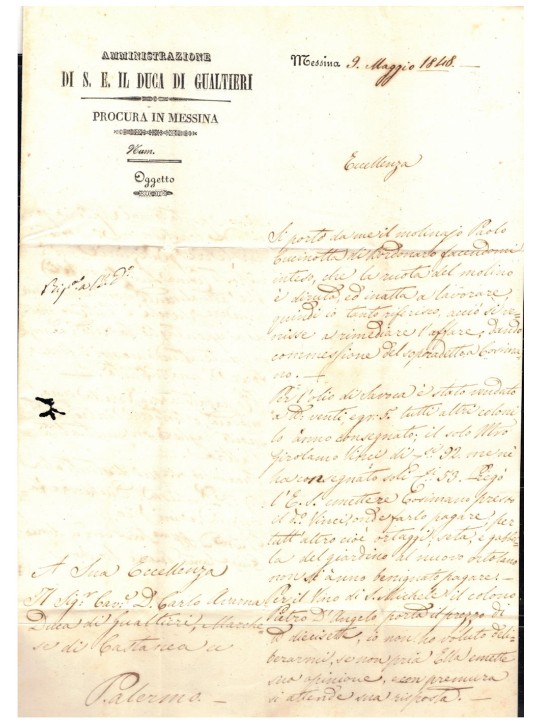 AMMINISTRAZIONE
DI S. E. IL DUCA DI GUALTIERI
PROCURA IN MESSINA
Num.
Oggetto
Messina 9. Maggio 1848.
Eccellenza
Si portò da me il molinajo Paolo
Cucinotta di Bordonaro facendomi
inteso, che la ruota del molino
è diruta, ed inatta a lavorare,
quindi io tanto riferisco, acciò si ve-
nisse a rimediare l'affare, dando
commissione del sopradetto a Cosima-
no.
Per l'olio di Savoca è stato venduto
a tutti altri coloni
lo anno consegnato, il solo Mro
Girolamo Vinci di 92. me ne
ha consegnato soli 53. Prego
l'E. S. emettere Cosimano presso
il Vinci, onde farlo pagare, per
tutt'altro cioè ortaggi, seta, e gabel-
la del giardino al nuovo ortolano
non si anno benignato pagare.
Per il vino di S. Michele il colono
Pietro D'Angelo porta il prezzo di
diecisette, io non ho voluto deli-
berarmi, se non pria Ella emette
sua opinione, e con premura
si attende sua risposta.
A Sua Eccellenza
Il Sigr. Cavr. D. Carlo
Duca di Gualtieri, Marche
se di Castania e
Palermo.